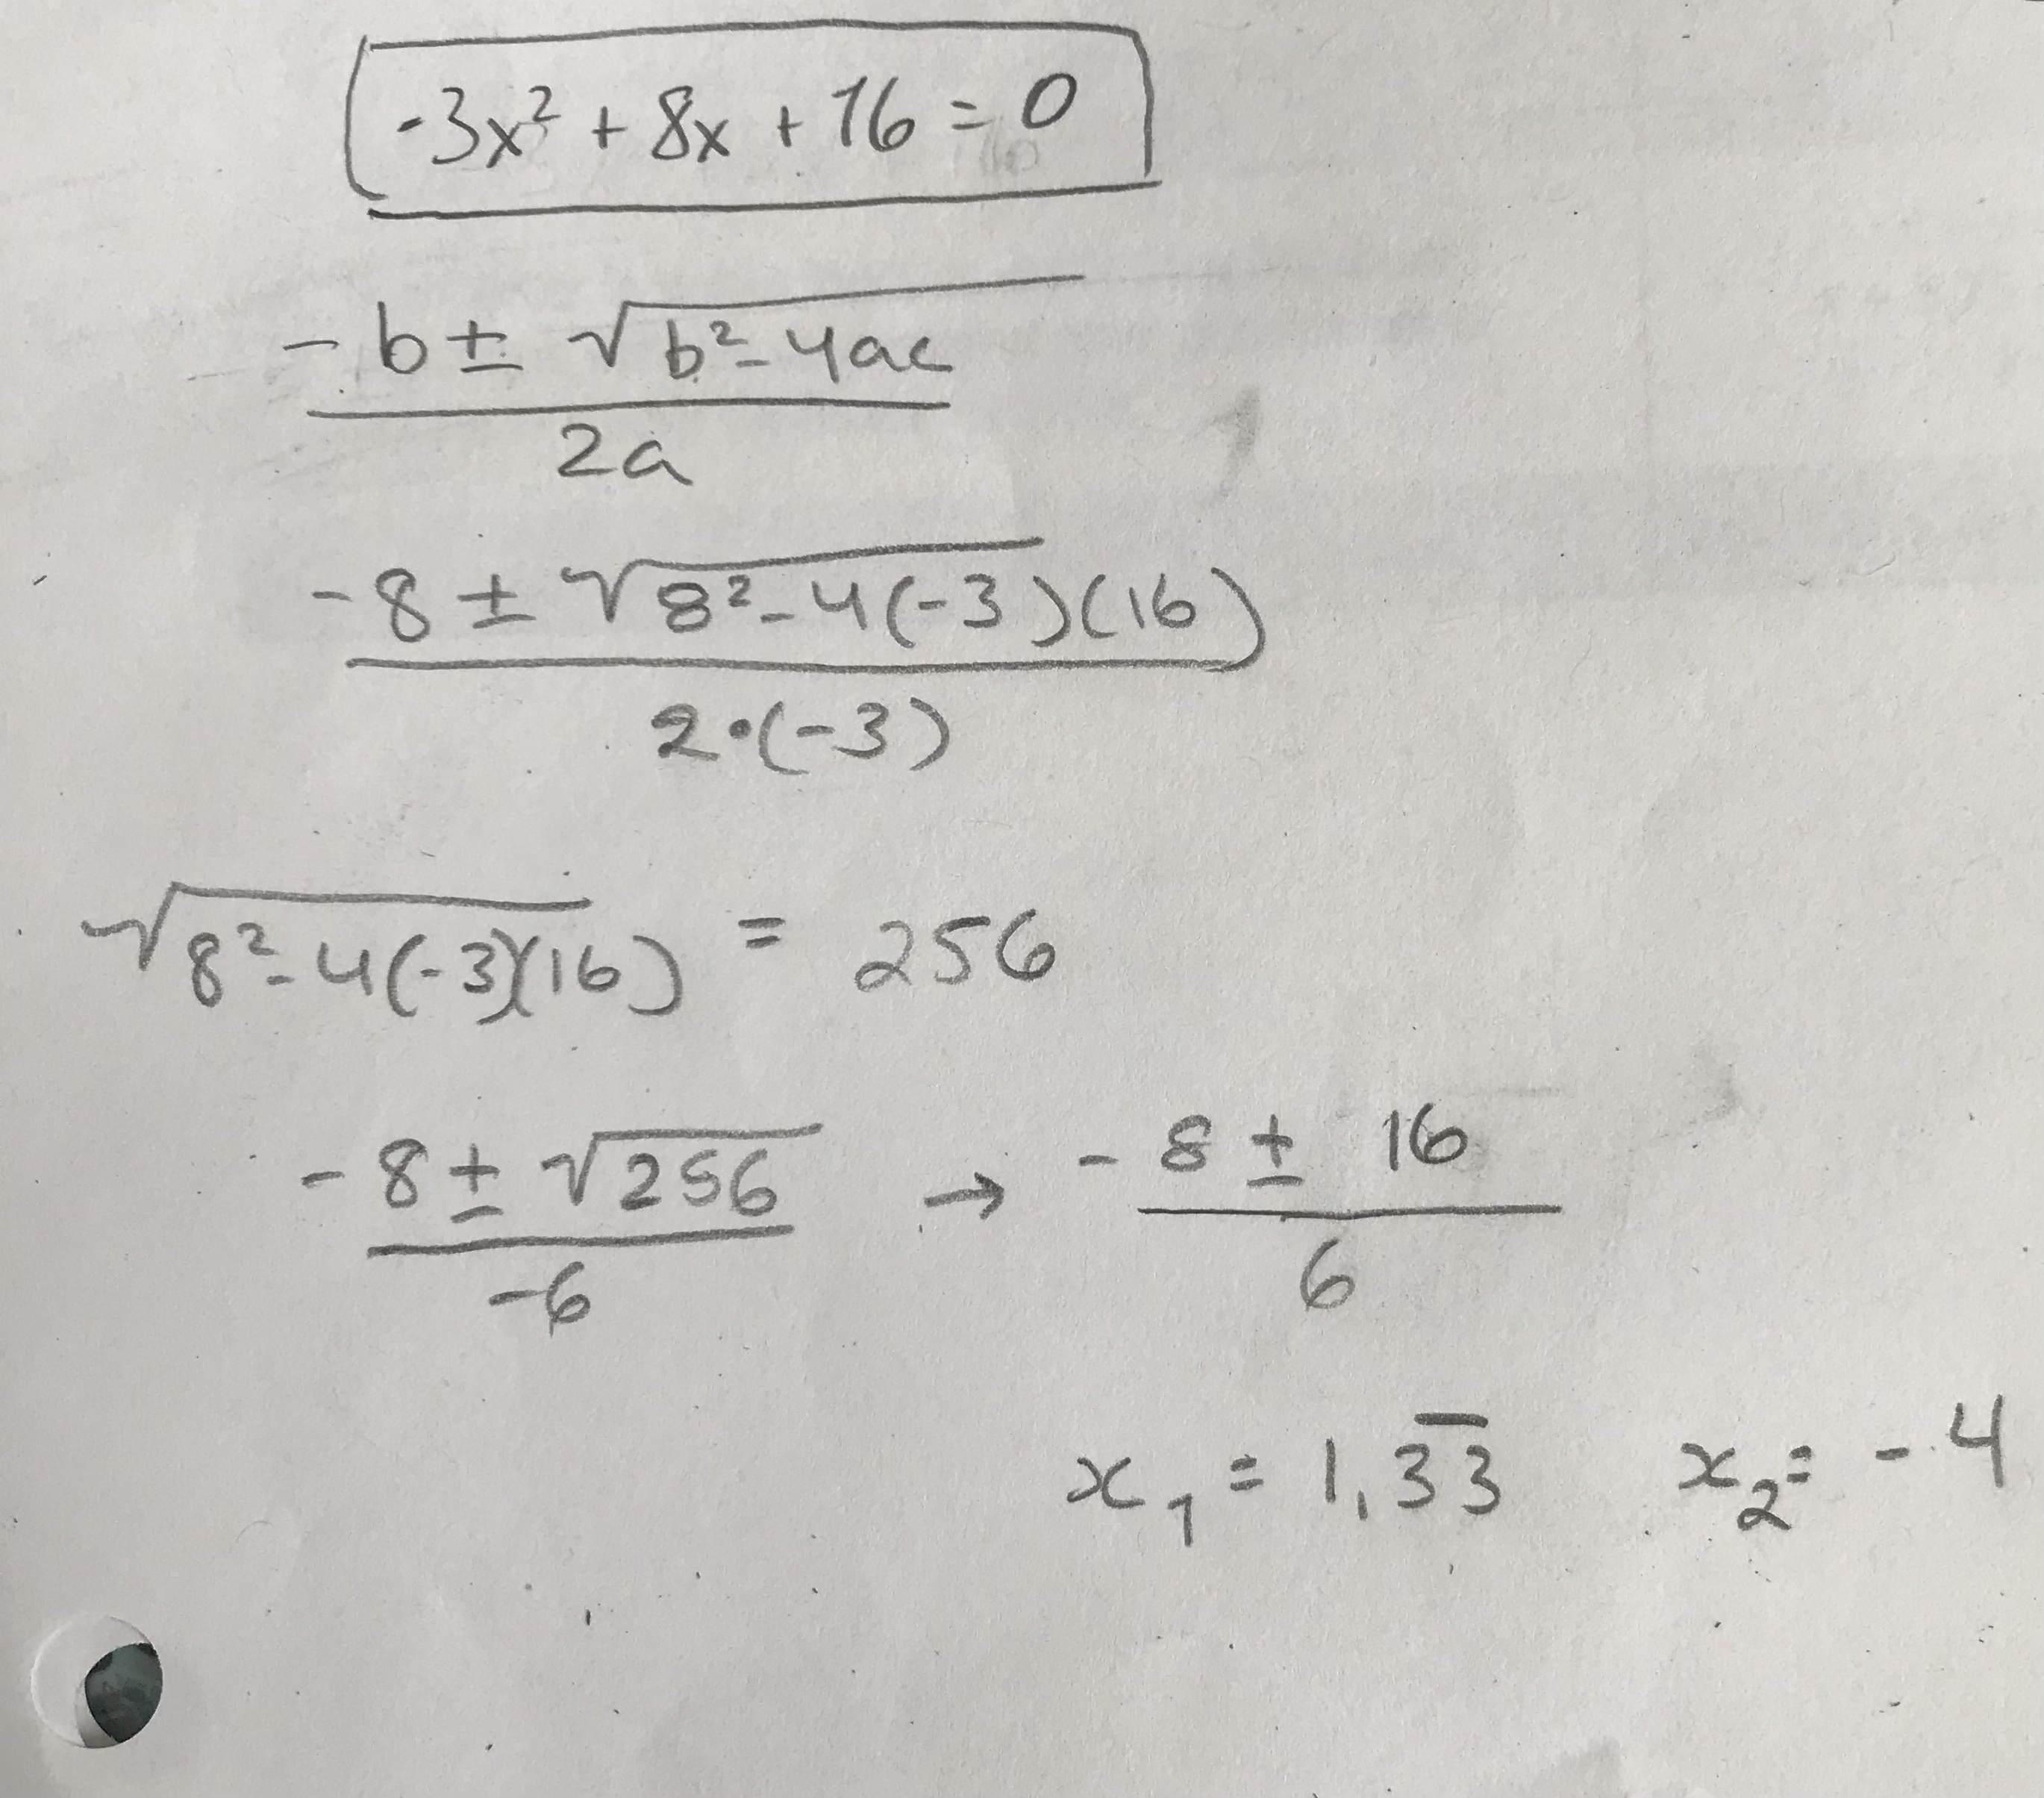 -3x² + 8x + 16 = 0
-b ± √(b² - 4ac)
2a
-8 ± √(8² - 4(-3)(16)
2·(-3)
√(8² - 4(-3)(16) = 256
-8 ± √256 → -8 ± 16
-6 6
x₁ = 1,3̅3̅ x₂ = -4